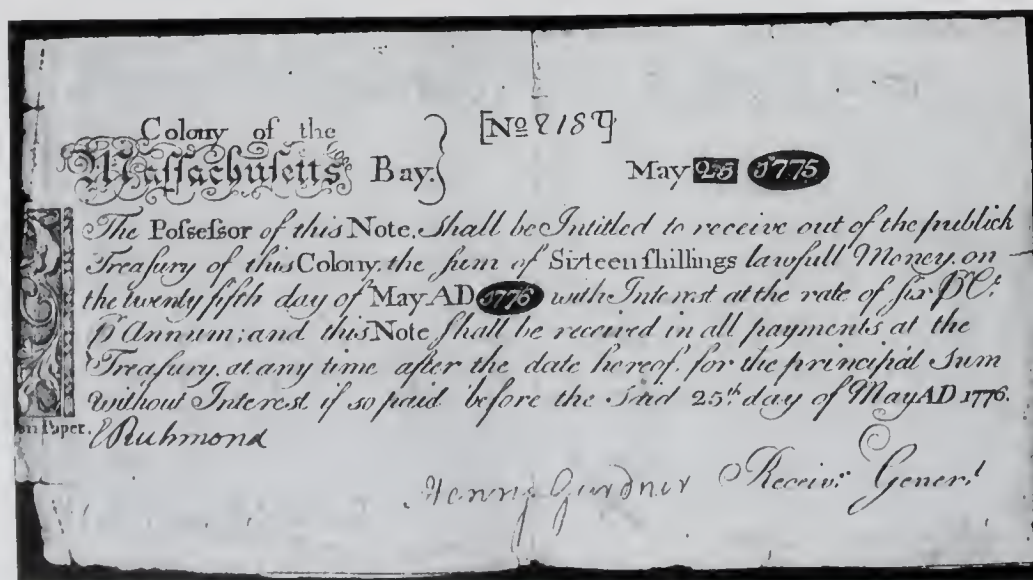 Colony of the
[Nº 2187]
Maſſachuſetts Bay.
May 25 1775
The Poſseſsor of this Note, ſhall be Intitled to receive out of the publick
Treaſury of this Colony, the ſum of Sixteen ſhillings lawfull Money, on
the twenty fifth day of May AD 1776 with Interest at the rate of ſix P Cᵗ
P Annum; and this Note ſhall be received in all payments at the
Treaſury, at any time after the date hereof, for the principal Sum
without Interest if so paid before the said 25.ᵗʰ day of May AD 1776.
Paper.
Richmond
Henry Gardner Receivʳ Generˡ